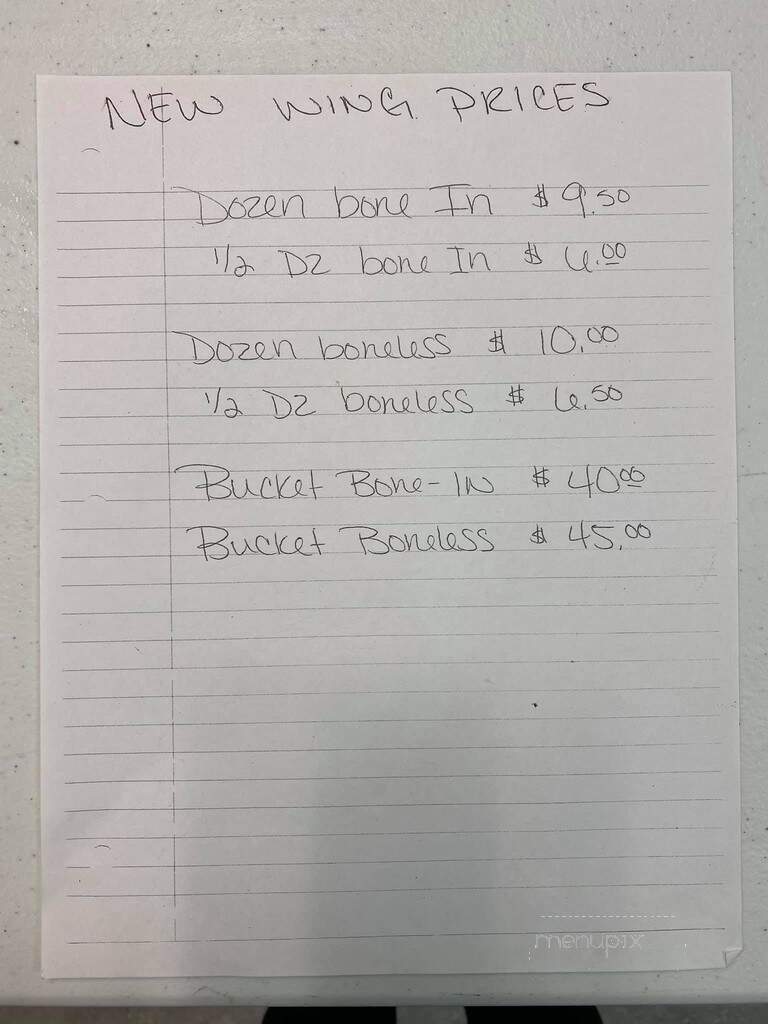 NEW WING PRICES
Dozen bone In $ 9.50
1/2 DZ bone In $ 6.00
Dozen boneless $ 10.00
1/2 DZ boneless $ 6.50
Bucket Bone-IN $ 40.00
Bucket Boneless $ 45.00
menupix